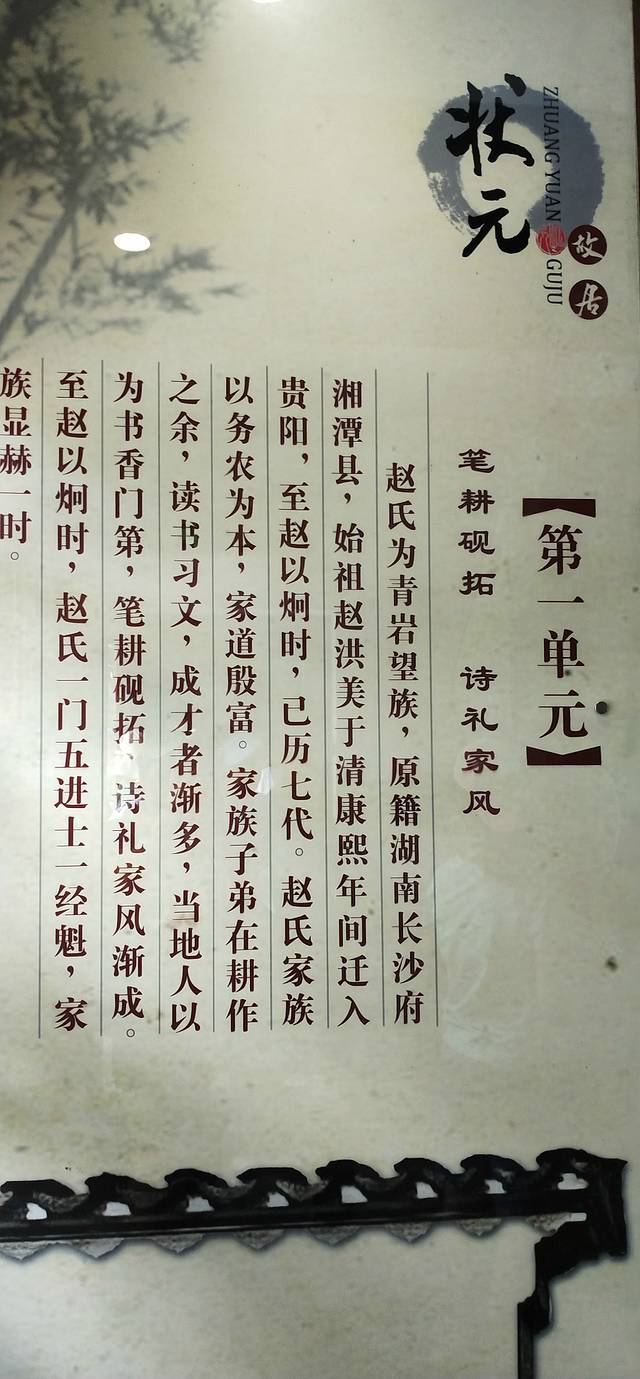 状元
ZHUANG YUAN GUJU
故居
【第一单元】
笔耕砚拓 诗礼家风
赵氏为青岩望族，原籍湖南长沙府
湘潭县，始祖赵洪美于清康熙年间迁入
贵阳，至赵以炯时，已历七代。赵氏家族
以务农为本，家道殷富。家族子弟在耕作
之余，读书习文，成才者渐多，当地人以
为书香门第，笔耕砚拓、诗礼家风渐成。
至赵以炯时，赵氏一门五进士一经魁，家
族显赫一时。